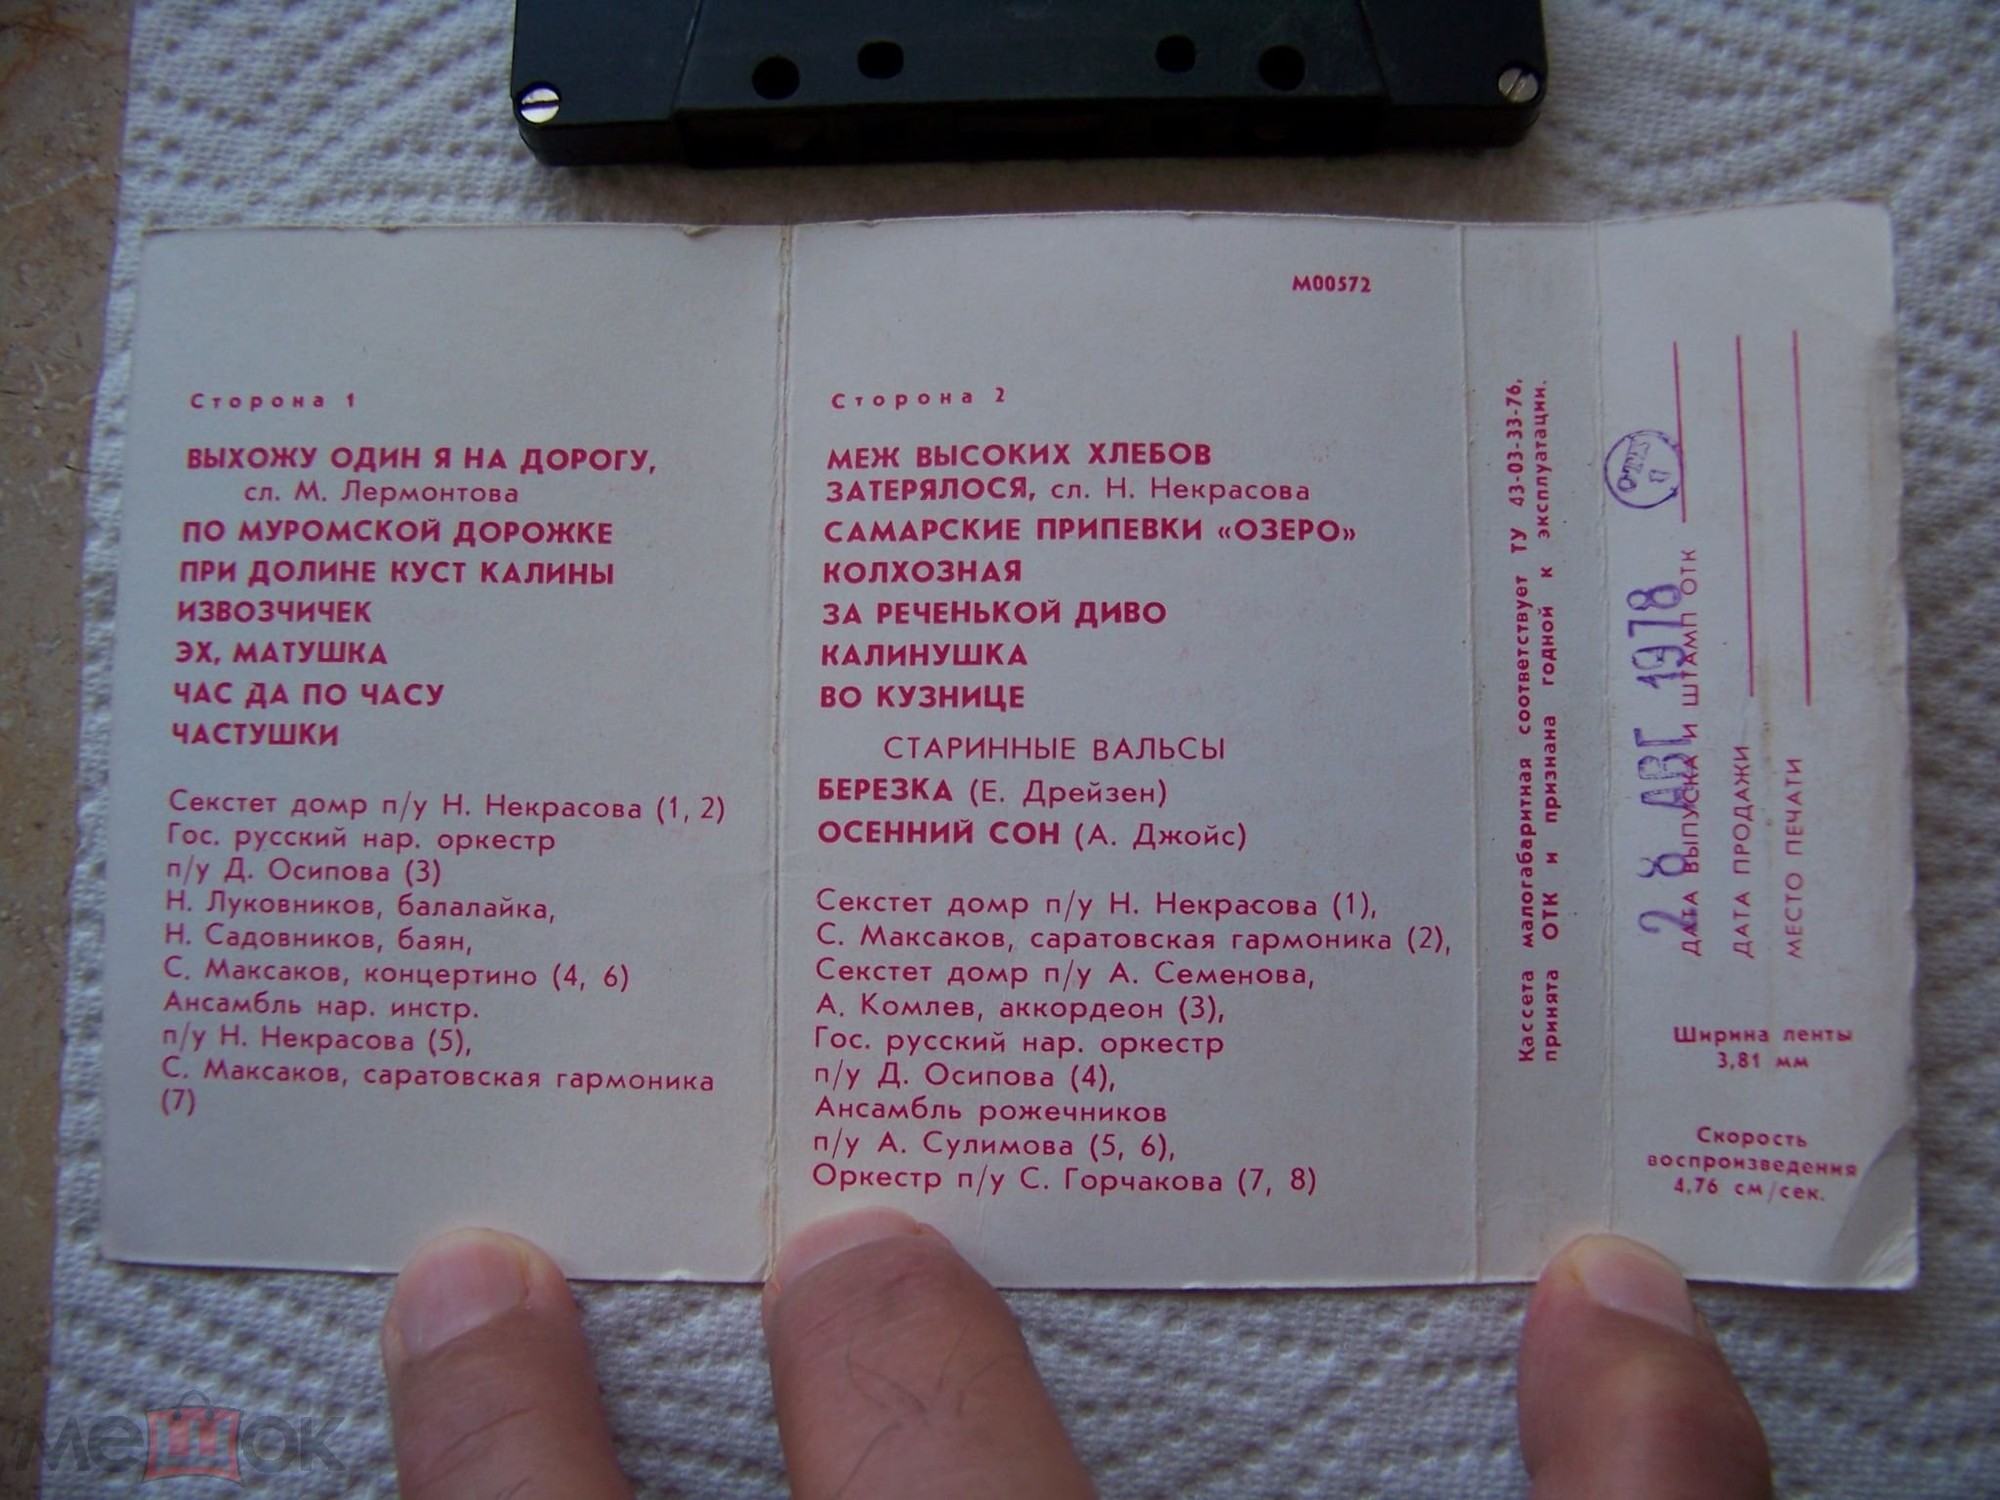 Сторона 1
ВЫХОЖУ ОДИН Я НА ДОРОГУ,
сл. М. Лермонтова
ПО МУРОМСКОЙ ДОРОЖКЕ
ПРИ ДОЛИНЕ КУСТ КАЛИНЫ
ИЗВОЗЧИЧЕК
ЭХ, МАТУШКА
ЧАС ДА ПО ЧАСУ
ЧАСТУШКИ
Секстет домр п/у Н. Некрасова (1, 2)
Гос. русский нар. оркестр
п/у Д. Осипова (3)
Н. Луковников, балалайка,
Н. Садовников, баян,
С. Максаков, концертино (4, 6)
Ансамбль нар. инстр.
п/у Н. Некрасова (5),
С. Максаков, саратовская гармоника
(7)
М00572
Сторона 2
МЕЖ ВЫСОКИХ ХЛЕБОВ
ЗАТЕРЯЛОСЯ, сл. Н. Некрасова
САМАРСКИЕ ПРИПЕВКИ «ОЗЕРО»
КОЛХОЗНАЯ
ЗА РЕЧЕНЬКОЙ ДИВО
КАЛИНУШКА
ВО КУЗНИЦЕ
СТАРИННЫЕ ВАЛЬСЫ
БЕРЕЗКА (Е. Дрейзен)
ОСЕННИЙ СОН (А. Джойс)
Секстет домр п/у Н. Некрасова (1),
С. Максаков, саратовская гармоника (2),
Секстет домр п/у А. Семенова,
А. Комлев, аккордеон (3),
Гос. русский нар. оркестр
п/у Д. Осипова (4),
Ансамбль рожечников
п/у А. Сулимова (5, 6),
Оркестр п/у С. Горчакова (7, 8)
Кассета малогабаритная соответствует ТУ 43-03-33-76,
принята ОТК и признана годной к эксплуатации.
2 8 АВГ 1978
ДАТА ВЫПУСКА И ШТАМП ОТК
ДАТА ПРОДАЖИ
МЕСТО ПЕЧАТИ
Ширина ленты
3,81 мм
Скорость
воспроизведения
4,76 см/сек.
мешок